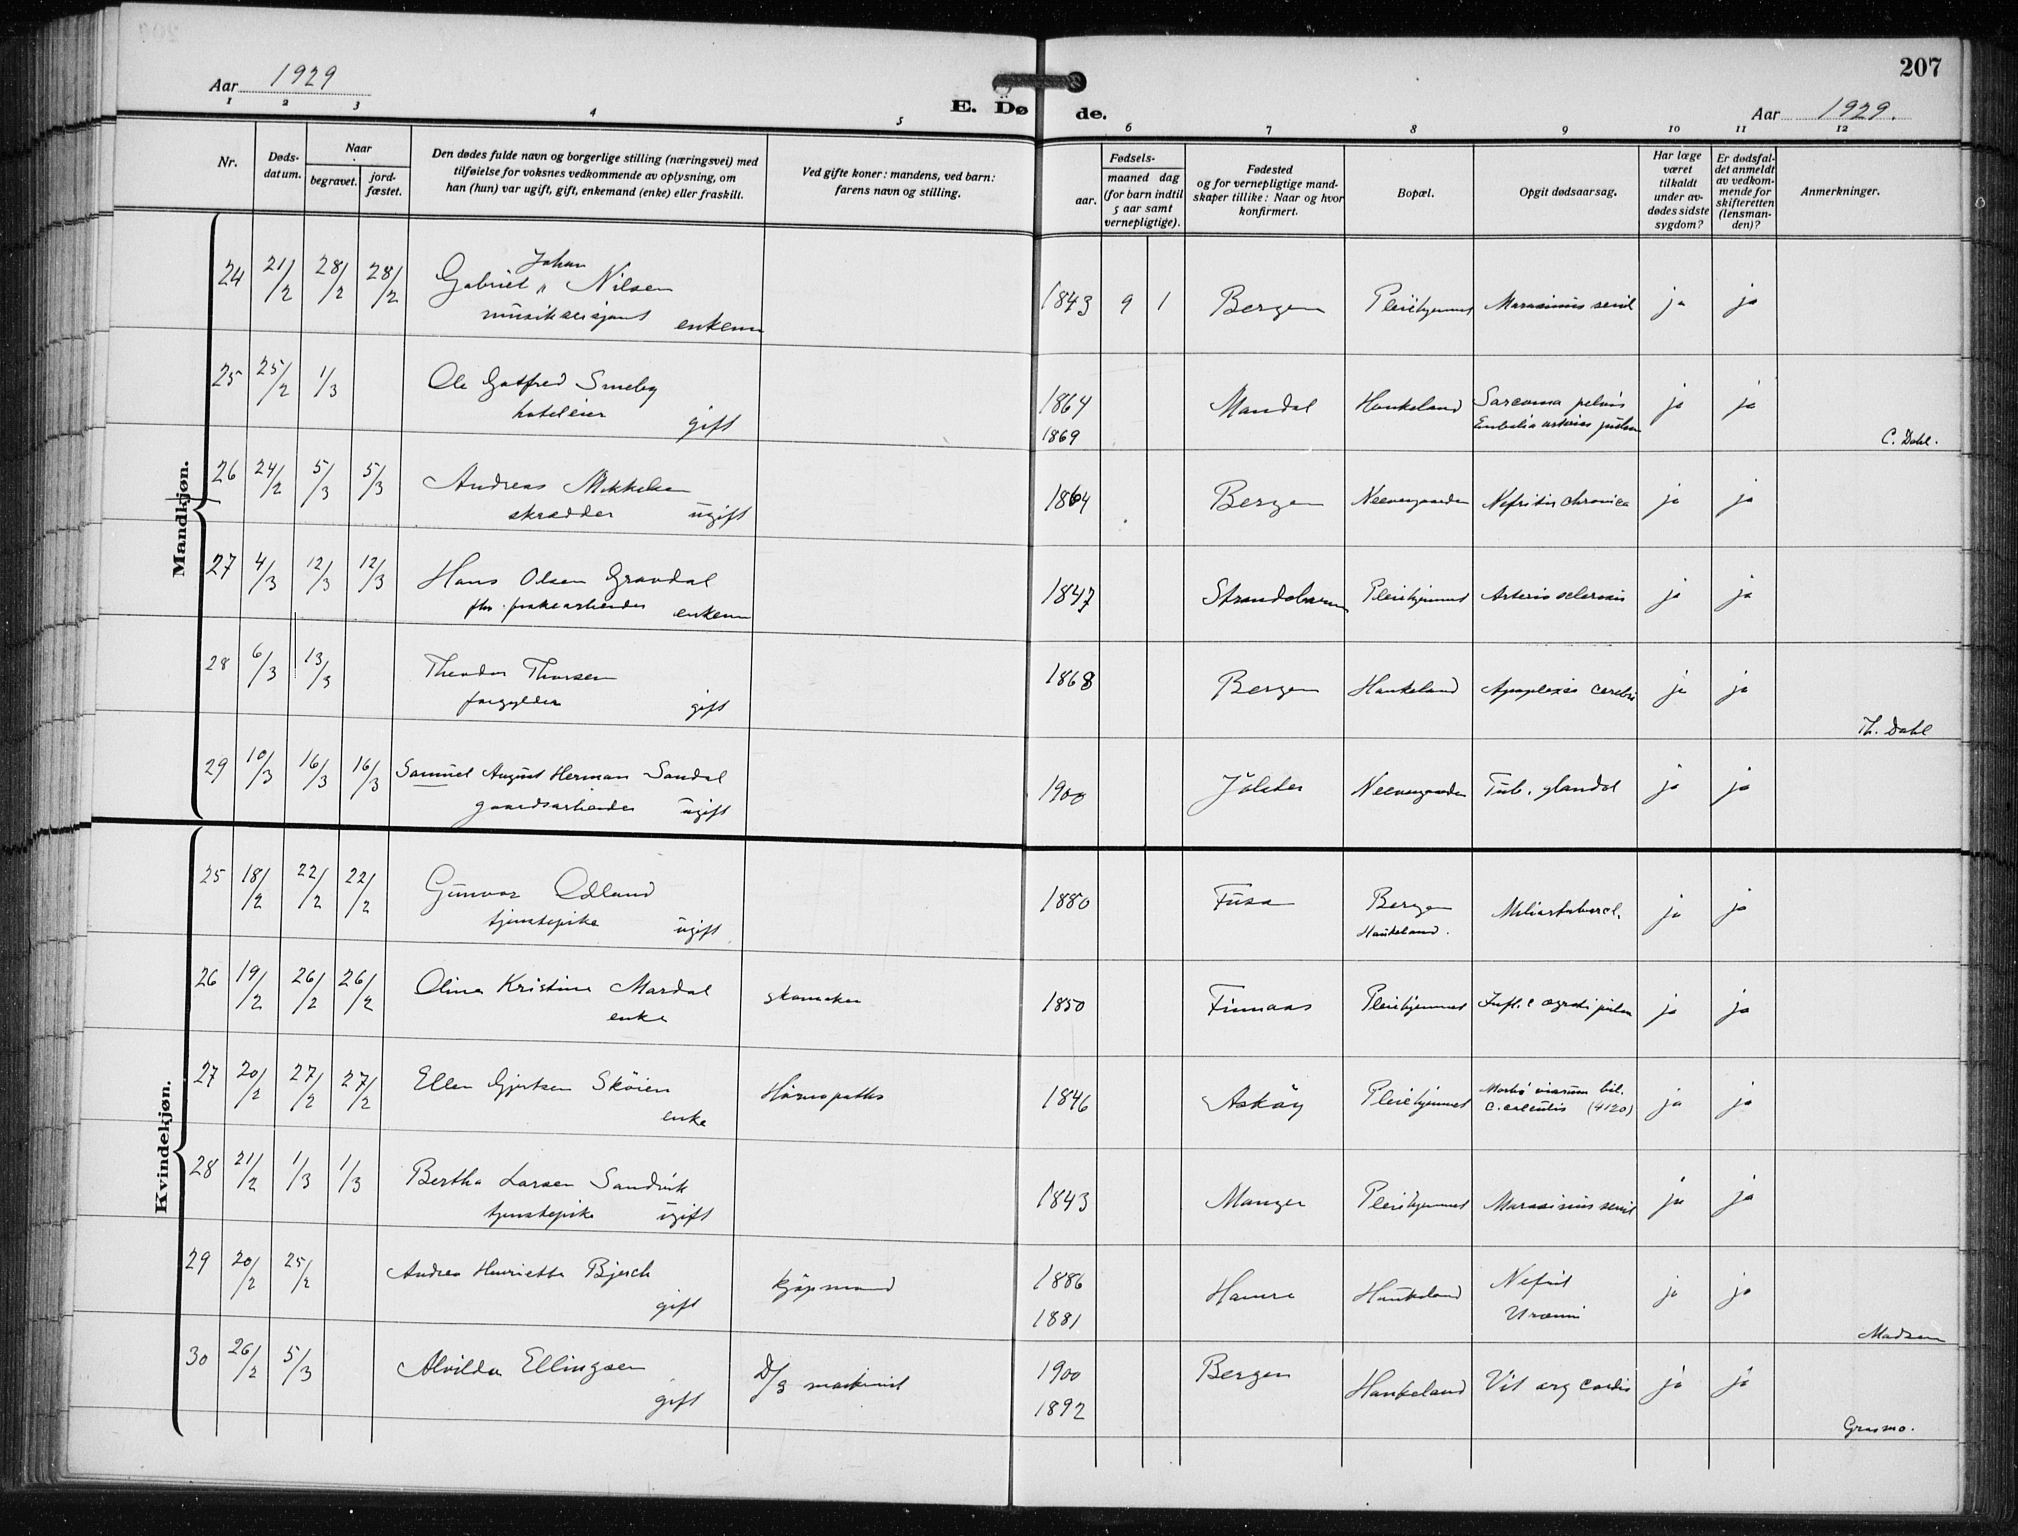 207
Aar 1929
E. Døde.
Aar 1929.
1 2 3 4 5 6 7 8 9 10 11 12
Nr.
Døds-
datum.
Naar
begravet.
jord-
fæstet.
Den dødes fulde navn og borgerlige stilling (næringsvei) med
tilføielse for voksnes vedkommende av oplysning, om
han (hun) var ugift, gift, enkemand (enke) eller fraskilt.
Ved gifte koner: mandens, ved barn:
farens navn og stilling.
Fødsels-
aar.
maaned dag
(for barn indtil
5 aar samt
vernepligtige).
Fødested
og for vernepligtige mand-
skaper tillike: Naar og hvor
konfirmert.
Bopæl.
Opgit dødsaarsag.
Har læge
været
tilkaldt
under av-
dødes sidste
sygdom?
Er dødsfal-
det anmeldt
av vedkom-
mende for
skifteretten
(lensman-
den)?
Anmerkninger.
Mandkjøn.
24 21/2 28/2 28/2 Gabriel Johan Nilsen 1843 9 1 Bergen Pleiehjemmet Marasimus senil ja ja
enkem
25 25/2 1/3 Ole Gotfred Smeby 1864 Mandal Haukeland Sarcoma pelvis ja ja
hoteleier gift 1869 C. Dahl.
26 24/2 5/3 5/3 Andreas Mikkelsen 1864 Bergen Neevengaarden Nefritis chronica ja ja
skrædder ugift
27 4/3 12/3 12/3 Hans Olsen Gravdal 1847 Strandebarm Pleiehjemmet Arterio sclerosis ja ja
enkem
28 6/3 13/3 Theodor Thorsen 1868 Bergen Haukeland Apoplexia cerebri ja ja
forgylder gift Th. Dahl
29 10/3 16/3 16/3 Samuel August Herman Sandal 1900 Jölster Neevengaarden Tub. glandel ja ja
gaardsarbeider ugift
Kvindekjøn.
25 18/2 22/2 22/2 Gunvor Ødland 1880 Fusa Bergen Miliartubercl. ja ja
tjenstepike ugift Haukeland.
26 19/2 26/2 26/2 Olina Kristine Mardal skomaker 1850 Finnaas Pleiehjemmet ja ja
enke
27 20/2 27/2 27/2 Ellen Gjertsen Sköien Homöopath 1846 Asköy Pleiehjemmet Morbi viarum bil. ja ja
enke c. calculis (4120)
28 21/2 1/3 1/3 Bertha Larsen Sandvik 1843 Manger Pleiehjemmet Marasimus senil ja ja
tjenstepike ugift
29 20/2 25/2 Andrea Henriette Bjerck kjöpmand 1886 Hamre Haukeland Nefrit ja ja
gift 1881 Uræmi Madsen
30 26/2 5/3 Alvilda Ellingsen D/s maskinist 1900 Bergen Haukeland Vit org cordis ja ja
gift 1892 Grasmo.